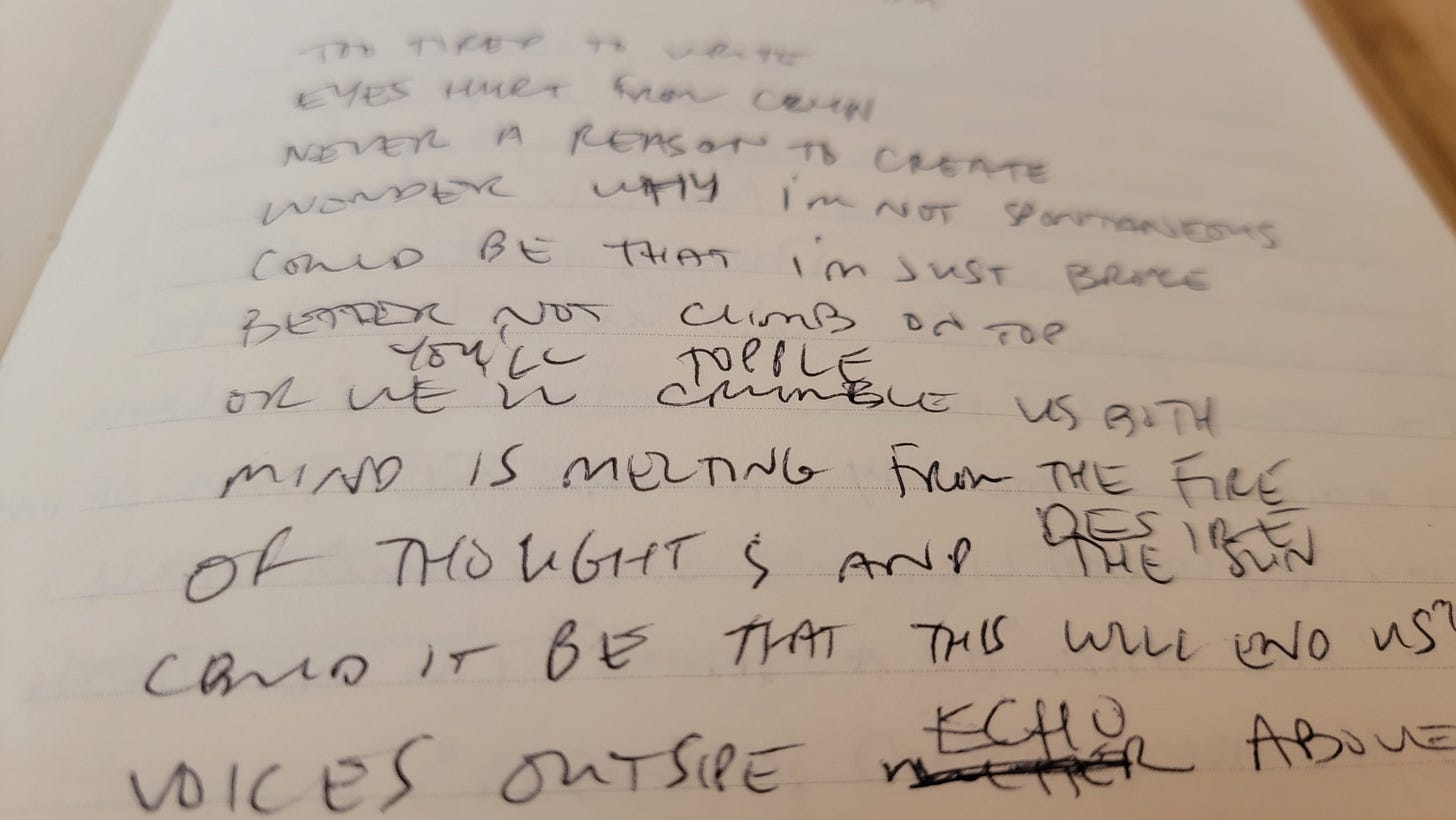 TOO TIRED TO WRITE
EYES HURT FROM CRYIN
NEVER A REASON TO CREATE
WONDER WHY I'M NOT SPONTANEOUS
COULD BE THAT I'M JUST BROKE
BETTER NOT CLIMB ON TOP
YOU'LL TOPPLE
OR WE'LL CRUMBLE US BOTH
MIND IS MELTING FROM THE FIRE
DESIRE
OF THOUGHTS AND THE SUN
COULD IT BE THAT THIS WILL END US?
ECHO
VOICES OUTSIDE ABOVE